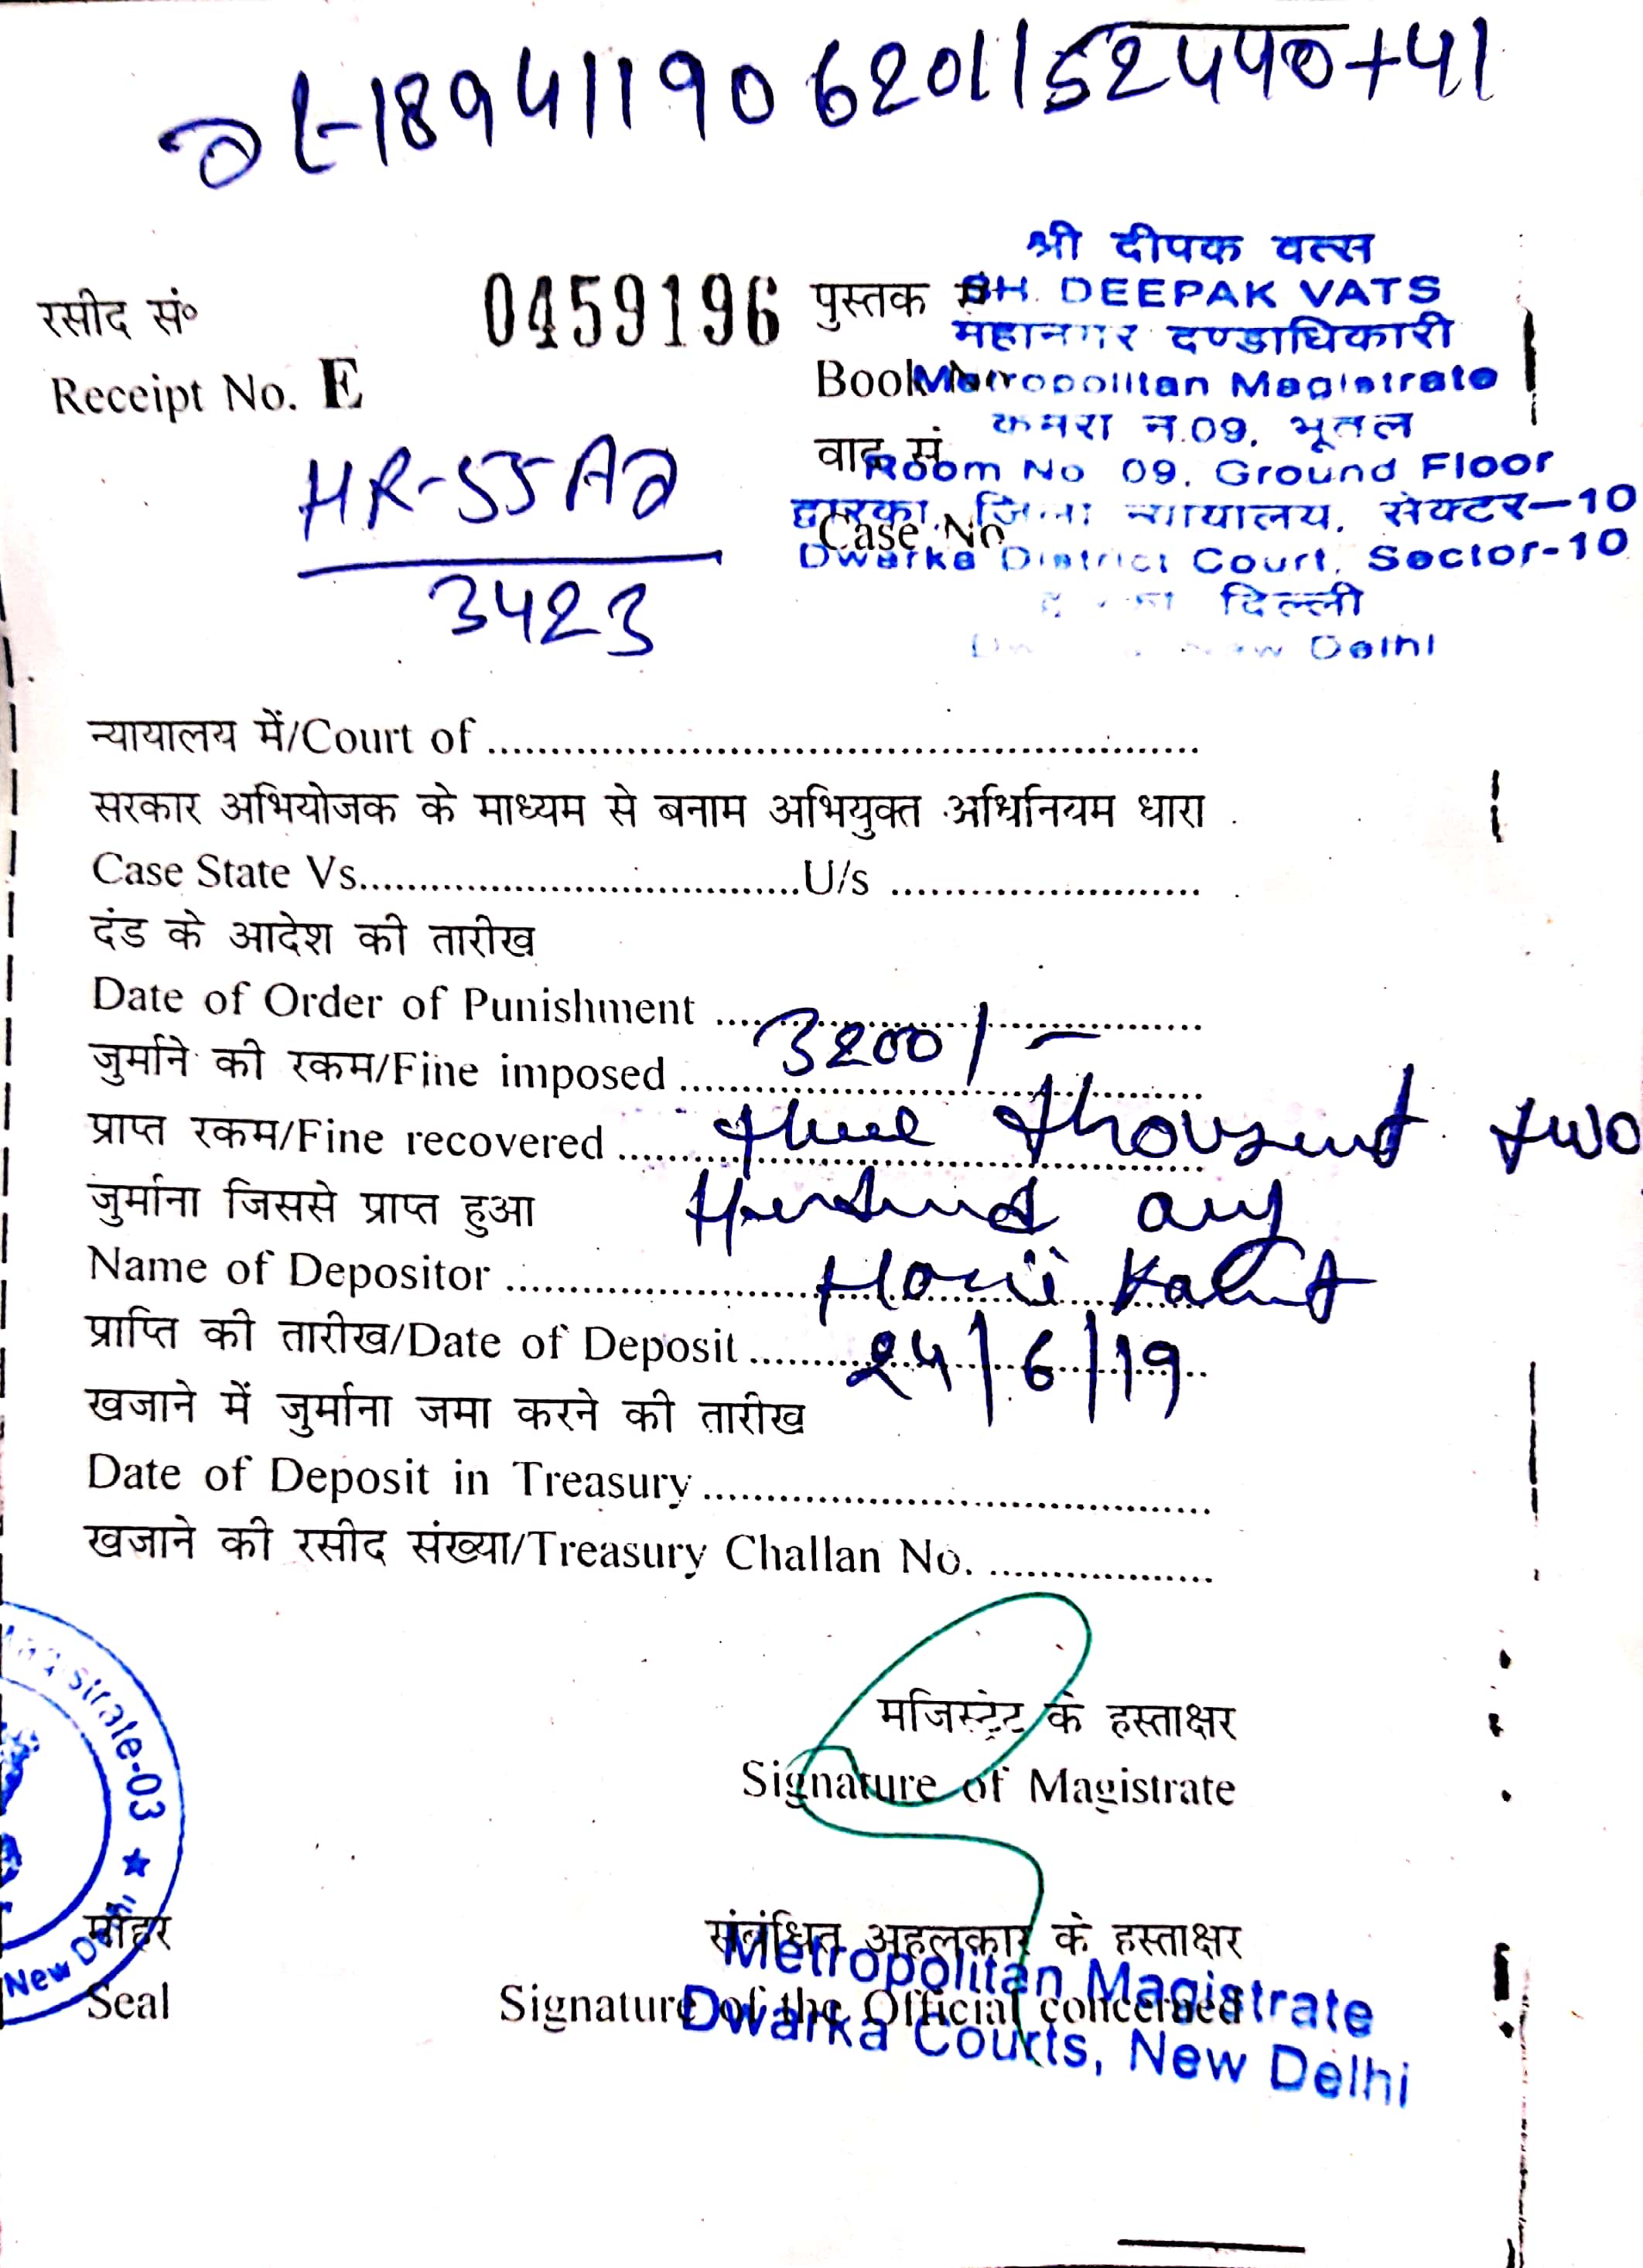 DL-18941190620115 52440+41
श्री दीपक वत्स
SH. DEEPAK VATS
रसीद सं० 0459196 पुस्तक सं
महानगर दण्डाधिकारी
Receipt No. E Book
Metropolitan Magistrate
कमरा न.09, भूतल
HR-55AD वाद सं
Room No 09, Ground Floor
द्वारका, जिला न्यायालय, सेक्टर-10
Case No
Dwarka District Court, Sector-10
3423
दिल्ली
New Delhi
न्यायालय में/Court of ........................................
सरकार अभियोजक के माध्यम से बनाम अभियुक्त अधिनियम धारा
Case State Vs....................................U/s .........................
दंड के आदेश की तारीख
Date of Order of Punishment ........................................
जुर्माने की रकम/Fine imposed 3200/-
प्राप्त रकम/Fine recovered three thousand two
जुर्माना जिससे प्राप्त हुआ Hundred only
Name of Depositor
प्राप्ति की तारीख/Date of Deposit 24/6/19
खजाने में जुर्माना जमा करने की तारीख
Date of Deposit in Treasury ........................................
खजाने की रसीद संख्या/Treasury Challan No. ...................
मजिस्ट्रेट के हस्ताक्षर
Signature of Magistrate
strate-03 ★
मोहर संबंधित अहलकार के हस्ताक्षर
Metropolitan Magistrate
New
Seal Signature of the Official concerned
Dwarka Courts, New Delhi